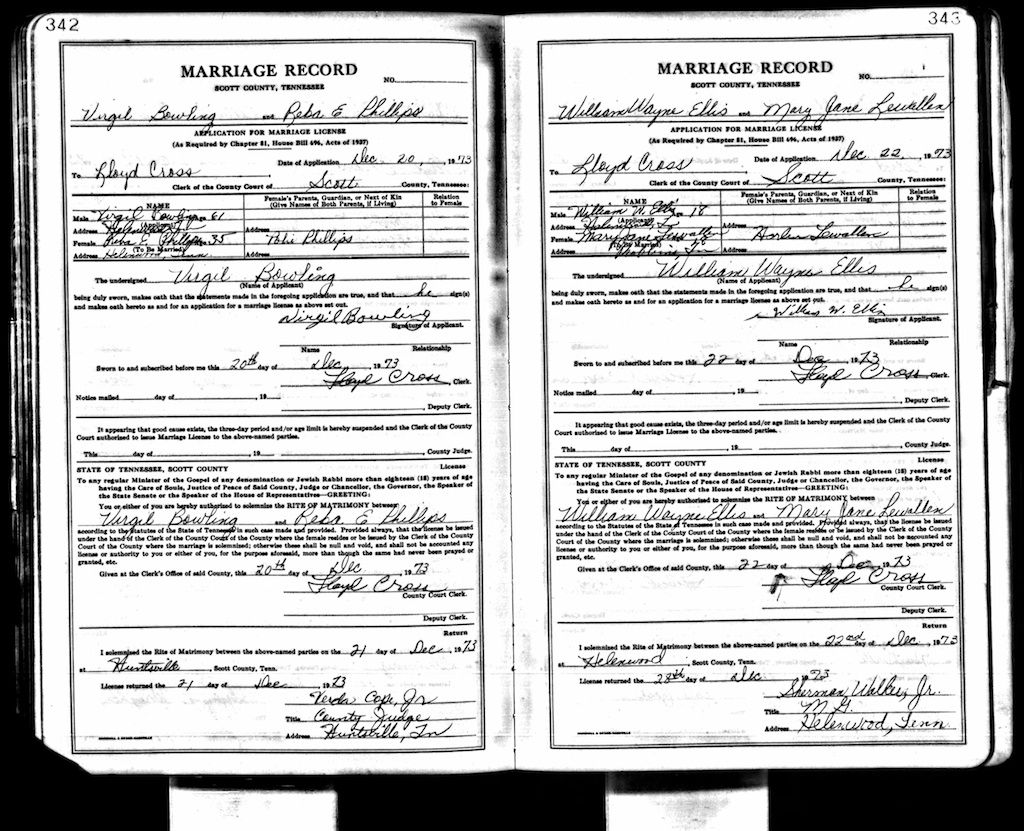 342
MARRIAGE RECORD
SCOTT COUNTY, TENNESSEE
NO.
Virgil Bowling and Reba E Phillips
APPLICATION FOR MARRIAGE LICENSE
(As Required by Chapter 81, House Bill 496, Acts of 1937)
Date of Application Dec 20, 1973
To Lloyd Cross
Clerk of the County Court of Scott County, Tennessee:
NAME
Female's Parents, Guardian, or Next of Kin
(Give Names of Both Parents, if Living)
Relation
to Female
Male Virgil Bowling Age 61
(Applicant)
Address
Address
Female Reba E. Phillips 35
(To Be Married)
Phillips
Address Helenwood Tenn
Address
The undersigned Virgil Bowling
(Name of Applicant)
being duly sworn, makes oath that the statements made in the foregoing application are true, and that he sign(s)
and makes oath hereto as and for an application for a marriage license as above set out.
Virgil Bowling
Signature of Applicant.
Name Relationship
Sworn to and subscribed before me this 20th day of Dec 1973
Lloyd Cross, Clerk.
Notice mailed day of , 19
, Deputy Clerk.
It appearing that good cause exists, the three-day period and/or age limit is hereby suspended and the Clerk of the County
Court authorized to issue Marriage License to the above-named parties.
This day of , 19 , County Judge.
STATE OF TENNESSEE, SCOTT COUNTY License
To any regular Minister of the Gospel of any denomination or Jewish Rabbi more than eighteen (18) years of age
having the Care of Souls, Justice of Peace of Said County, Judge or Chancellor, the Governor, the Speaker of
the State Senate or the Speaker of the House of Representatives—GREETING:
You or either of you are hereby authorized to solemnize the RITE OF MATRIMONY between
Virgil Bowling and Reba E Phillips
according to the Statutes of the State of Tennessee in such case made and provided. Provided always, that the license be issued
under the hand of the Clerk of the County Court of the County where the female resides or be issued by the Clerk of the County
Court of the County where the marriage is solemnized; otherwise these shall be null and void, and shall not be accounted any
license or authority to you or either of you, for the purpose aforesaid, more than though the same had never been prayed or
granted, etc.
Given at the Clerk's Office of said County, this 20th day of Dec 1973
Lloyd Cross
County Court Clerk.
Deputy Clerk.
Return
I solemnized the Rite of Matrimony between the above-named parties on the 21 day of Dec, 1973
at Huntsville, Scott County, Tenn.
License returned the 21 day of Dec 1973
Cope, Jr
Title County Judge
Address Huntsville, Tn
343
MARRIAGE RECORD
SCOTT COUNTY, TENNESSEE
NO.
William Wayne Ellis and Mary Jane Lewallen
APPLICATION FOR MARRIAGE LICENSE
(As Required by Chapter 81, House Bill 496, Acts of 1937)
Date of Application Dec 22, 1973
To Lloyd Cross
Clerk of the County Court of Scott County, Tennessee:
NAME
Female's Parents, Guardian, or Next of Kin
(Give Names of Both Parents, if Living)
Relation
to Female
Male William W. Ellis 18
(Applicant)
Address Helenwood, Tn
Address
Female Mary Jane Lewallen
(To Be Married)
Lewallen
Address Robbins, Tn
Address
The undersigned William Wayne Ellis
(Name of Applicant)
being duly sworn, makes oath that the statements made in the foregoing application are true, and that he sign(s)
and makes oath hereto as and for an application for a marriage license as above set out.
William W. Ellis
Signature of Applicant.
Name Relationship
Sworn to and subscribed before me this 22 day of Dec, 1973
Lloyd Cross, Clerk.
Notice mailed day of , 19
, Deputy Clerk.
It appearing that good cause exists, the three-day period and/or age limit is hereby suspended and the Clerk of the County
Court authorized to issue Marriage License to the above-named parties.
This day of , 19 , County Judge.
STATE OF TENNESSEE, SCOTT COUNTY License
To any regular Minister of the Gospel of any denomination or Jewish Rabbi more than eighteen (18) years of age
having the Care of Souls, Justice of Peace of Said County, Judge or Chancellor, the Governor, the Speaker of
the State Senate or the Speaker of the House of Representatives—GREETING:
You or either of you are hereby authorized to solemnize the RITE OF MATRIMONY between
William Wayne Ellis and Mary Jane Lewallen
according to the Statutes of the State of Tennessee in such case made and provided. Provided always, that the license be issued
under the hand of the Clerk of the County Court of the County where the female resides or be issued by the Clerk of the County
Court of the County where the marriage is solemnized; otherwise these shall be null and void, and shall not be accounted any
license or authority to you or either of you, for the purpose aforesaid, more than though the same had never been prayed or
granted, etc.
Given at the Clerk's Office of said County, this 22 day of Dec 1973
Lloyd Cross
County Court Clerk.
Deputy Clerk.
Return
I solemnized the Rite of Matrimony between the above-named parties on the 22nd day of Dec, 1973
at Helenwood, Scott County, Tenn.
License returned the 28th day of Dec. 1973
Sherman Walker, Jr.
Title M.G.
Address Helenwood, Tenn.